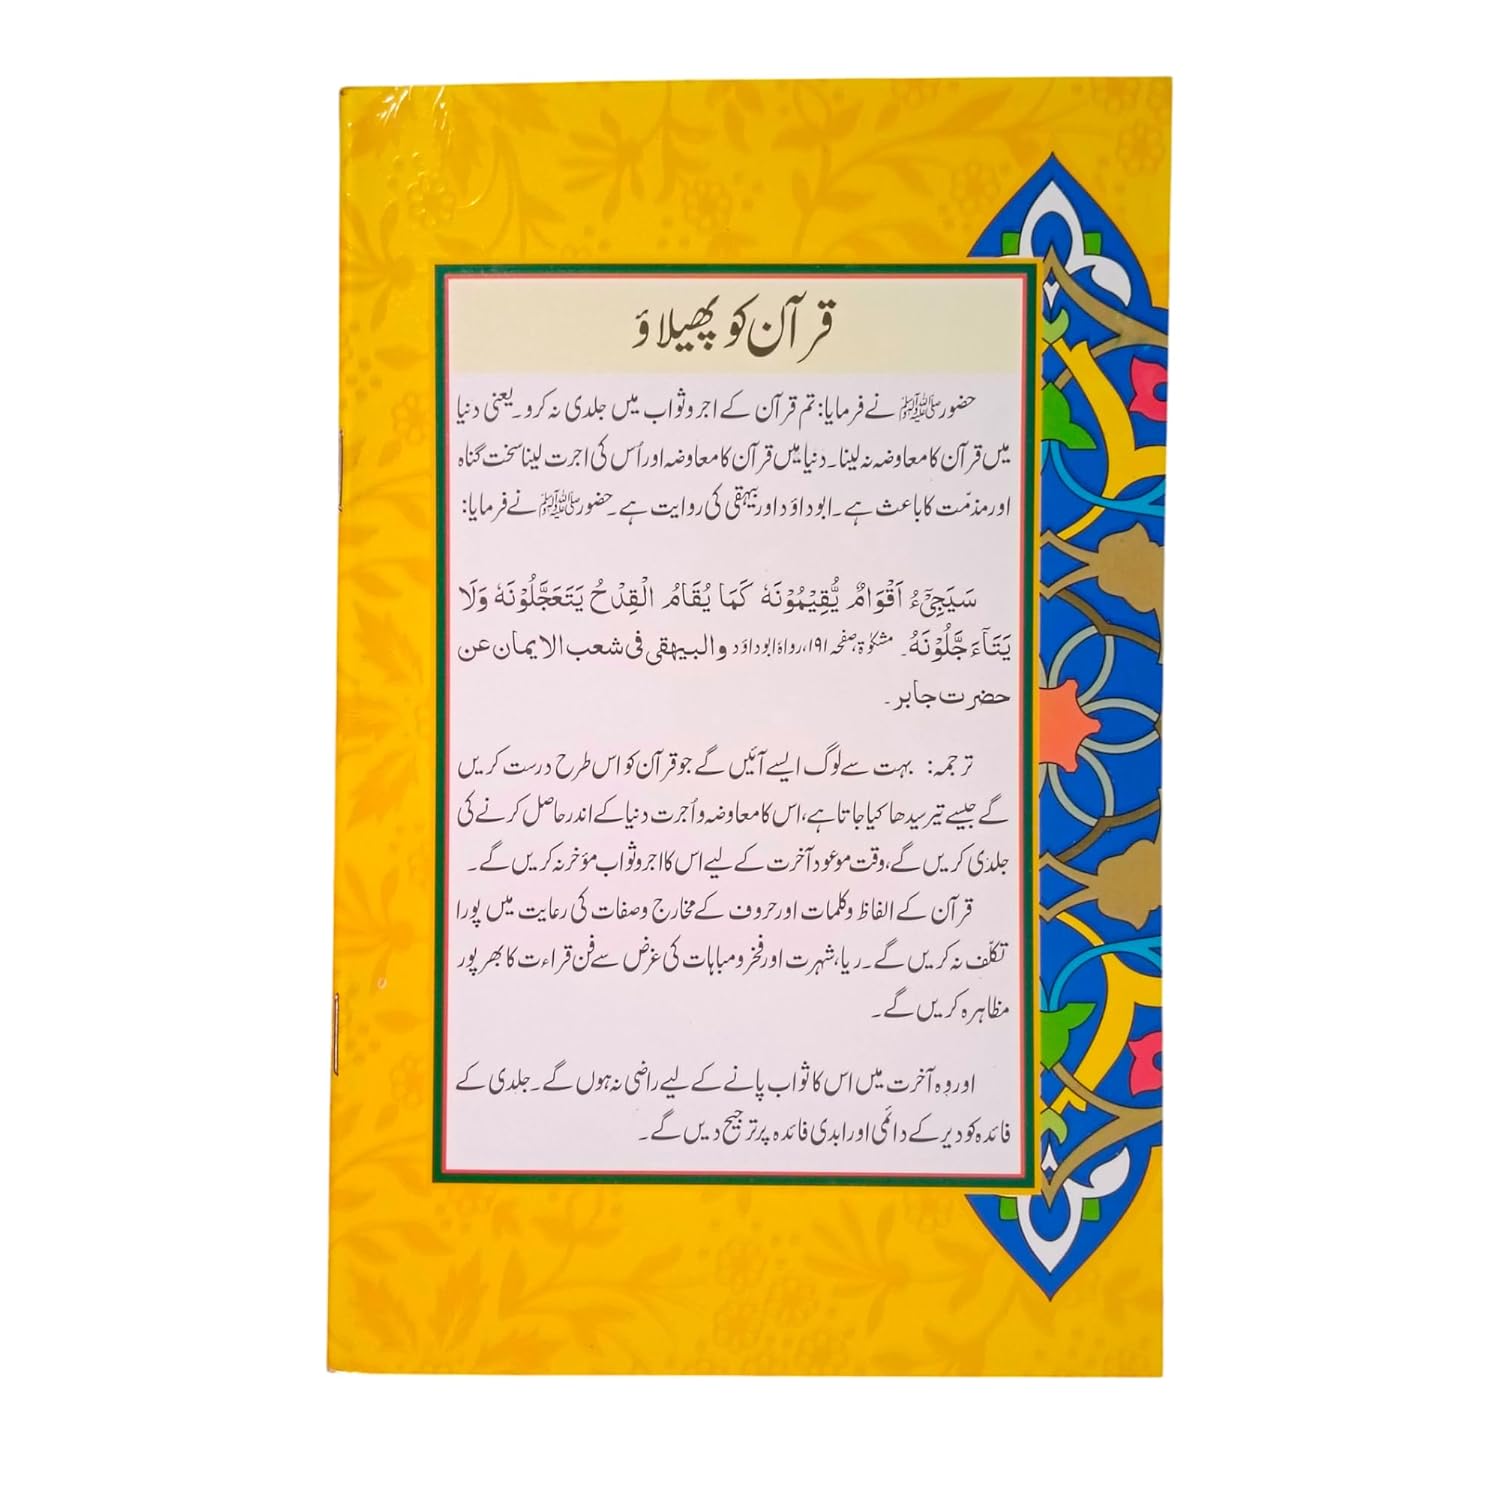 قرآن کو پھیلاؤ
حضورﷺ نے فرمایا: تم قرآن کے اجر و ثواب میں جلدی نہ کرو۔ یعنی دنیا
میں قرآن کا معاوضہ نہ لینا۔ دنیا میں قرآن کا معاوضہ اور اُس کی اجرت لینا سخت گناہ
اور مذمّت کا باعث ہے۔ ابوداؤد اور بیہقی کی روایت ہے۔ حضورﷺ نے فرمایا:
سَيَجِيْٓءُ اَقْوَامٌ يُّقِيْمُوْنَهٗ كَمَا يُقَامُ الْقِدْحُ يَتَعَجَّلُوْنَهٗ وَلَا
يَتَآءَجَّلُوْنَهٗ۔ مشکوٰۃ، صفحہ ۱۹۱، رواہ ابوداؤد والبیهقی فی شعب الایمان عن
حضرت جابر۔
ترجمہ: بہت سے لوگ ایسے آئیں گے جو قرآن کو اس طرح درست کریں
گے جیسے تیر سیدھا کیا جاتا ہے، اس کا معاوضہ و اُجرت دنیا کے اندر حاصل کرنے کی
جلدی کریں گے، وقت موعود آخرت کے لیے اس کا اجر و ثواب مؤخر نہ کریں گے۔
قرآن کے الفاظ و کلمات اور حروف کے مخارج و صفات کی رعایت میں پورا
تکلّف نہ کریں گے۔ ریا، شہرت اور فخر و مباہات کی غرض سے فن قراءت کا بھرپور
مظاہرہ کریں گے۔
اور وہ آخرت میں اس کا ثواب پانے کے لیے راضی نہ ہوں گے۔ جلدی کے
فائدہ کو دیر کے دائمی اور ابدی فائدہ پر ترجیح دیں گے۔